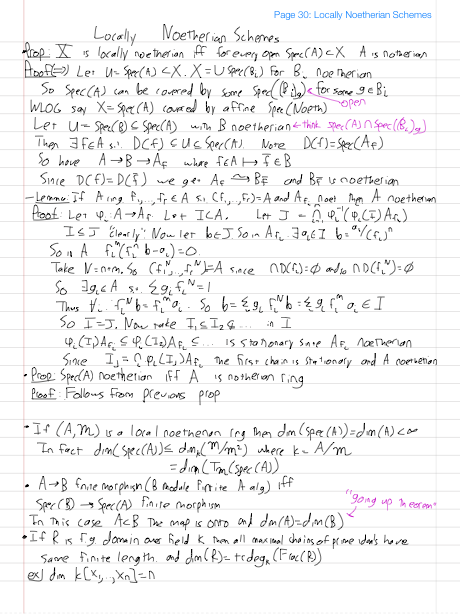 Page 30: Locally Noetherian Schemes
Locally Noetherian Schemes
• Prop: X is locally noetherian iff for every open Spec(A) ⊂ X A is notherian
Proof(⇒) Let U = Spec(A) ⊂ X. X = ∪ Spec(B_i) for B_i noetherian
So Spec(A) can be covered by some Spec((B_i)_g) for some g∈B_i
open
WLOG say X = Spec(A) covered by affine Spec(Noeth)
Let U = Spec(B) ⊆ Spec(A) with B noetherian ← think Spec(A) ∩ Spec((B_i)_g)
Then ∃ f∈A s.t. D(f) ⊆ U ⊆ Spec(A). Note D(f) = Spec(A_f)
So have A → B → A_f where f∈A ↦ f̄∈B
Since D(f) = D(f̄) we get A_f ≅ B_f̄ and B_f̄ is noetherian
- Lemma: If A ring f_1,...,f_r ∈ A s.t. (f_1,...,f_r) = A and A_{f_i} noet then A noetherian
Proof: Let φ_i: A → A_{f_i}. Let I ⊂ A. Let J = ∩ φ_i^{-1}(φ_i(I) A_{f_i})
I ⊆ J "clearly". Now let b∈J. So in A_{f_i} ∃ a_i∈I b = a_i/(f_i)^n
So in A f_i^m(f_i^n b - a_i) = 0.
Take N = n+m. So (f_1^N,...,f_r^N) = A since ∩D(f_i) = ∅ and so ∩D(f_i^N) = ∅
So ∃ g_i∈A s.t. Σ g_i f_i^N = 1
Thus ∀i. f_i^N b = f_i^m a_i. So b = Σ g_i f_i^N b = Σ g_i f_i^m a_i ∈ I
So I = J. Now take I_1 ⊆ I_2 ⊆ ... in I
φ_i(I_1)A_{f_i} ⊆ φ_i(I_2)A_{f_i} ⊆ ... is stationary since A_{f_i} noetherian
Since I_j = ∩ φ_i(I_j)A_{f_i} the first chain is stationary and A noetherian
• Prop: Spec(A) noetherian iff A is notherian ring
Proof: Follows from previous prop
• If (A, m) is a local noetherian ring then dim(Spec(A)) = dim(A) < ∞
In fact dim(Spec(A)) ≤ dim_k(m/m²) where k = A/m
= dim(T_m(Spec(A))
• A → B finite morphism (B module finite A alg) iff
Spec(B) → Spec(A) finite morphism
"going up theorem"
In this case A ⊂ B the map is onto and dim(A) = dim(B)
• If R is f.g. domain over field k then all maximal chains of prime ideals have
same finite length and dim(R) = trdeg_k(Frac(R))
ex) dim k[x_1,...,x_n] = n